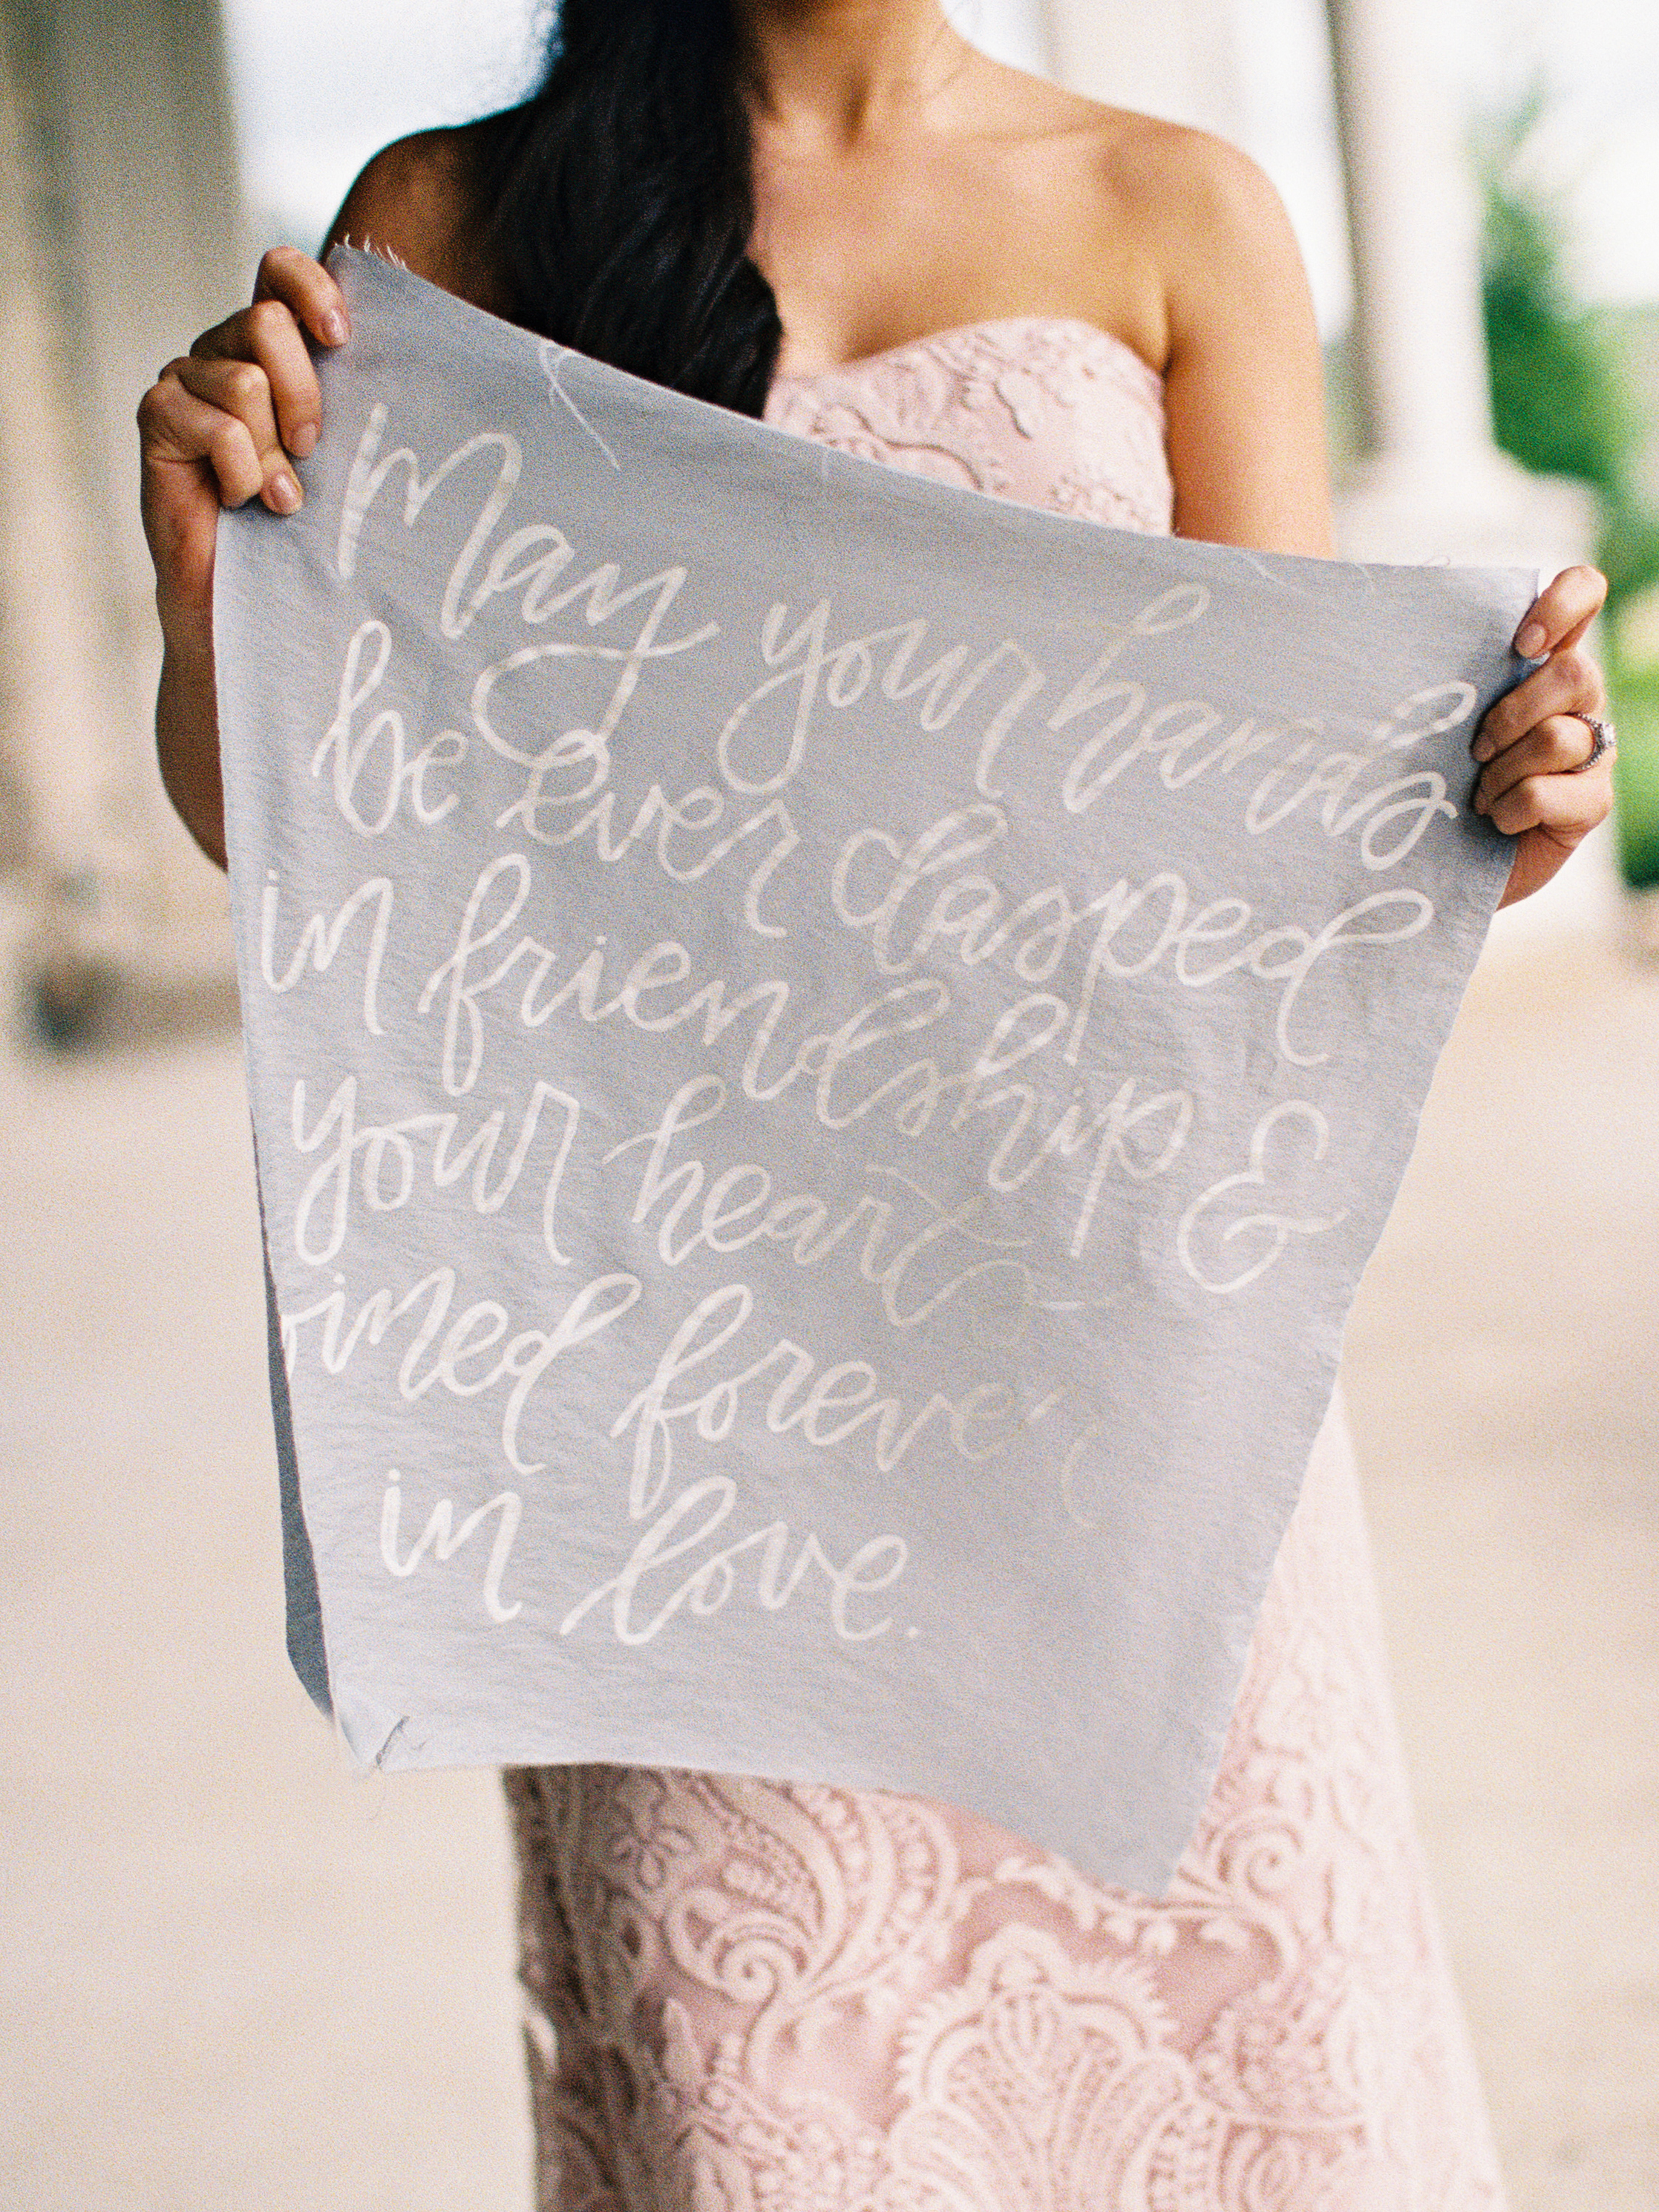 May your hands
be ever clasped
in friendship &
your hearts
joined forever
in love.